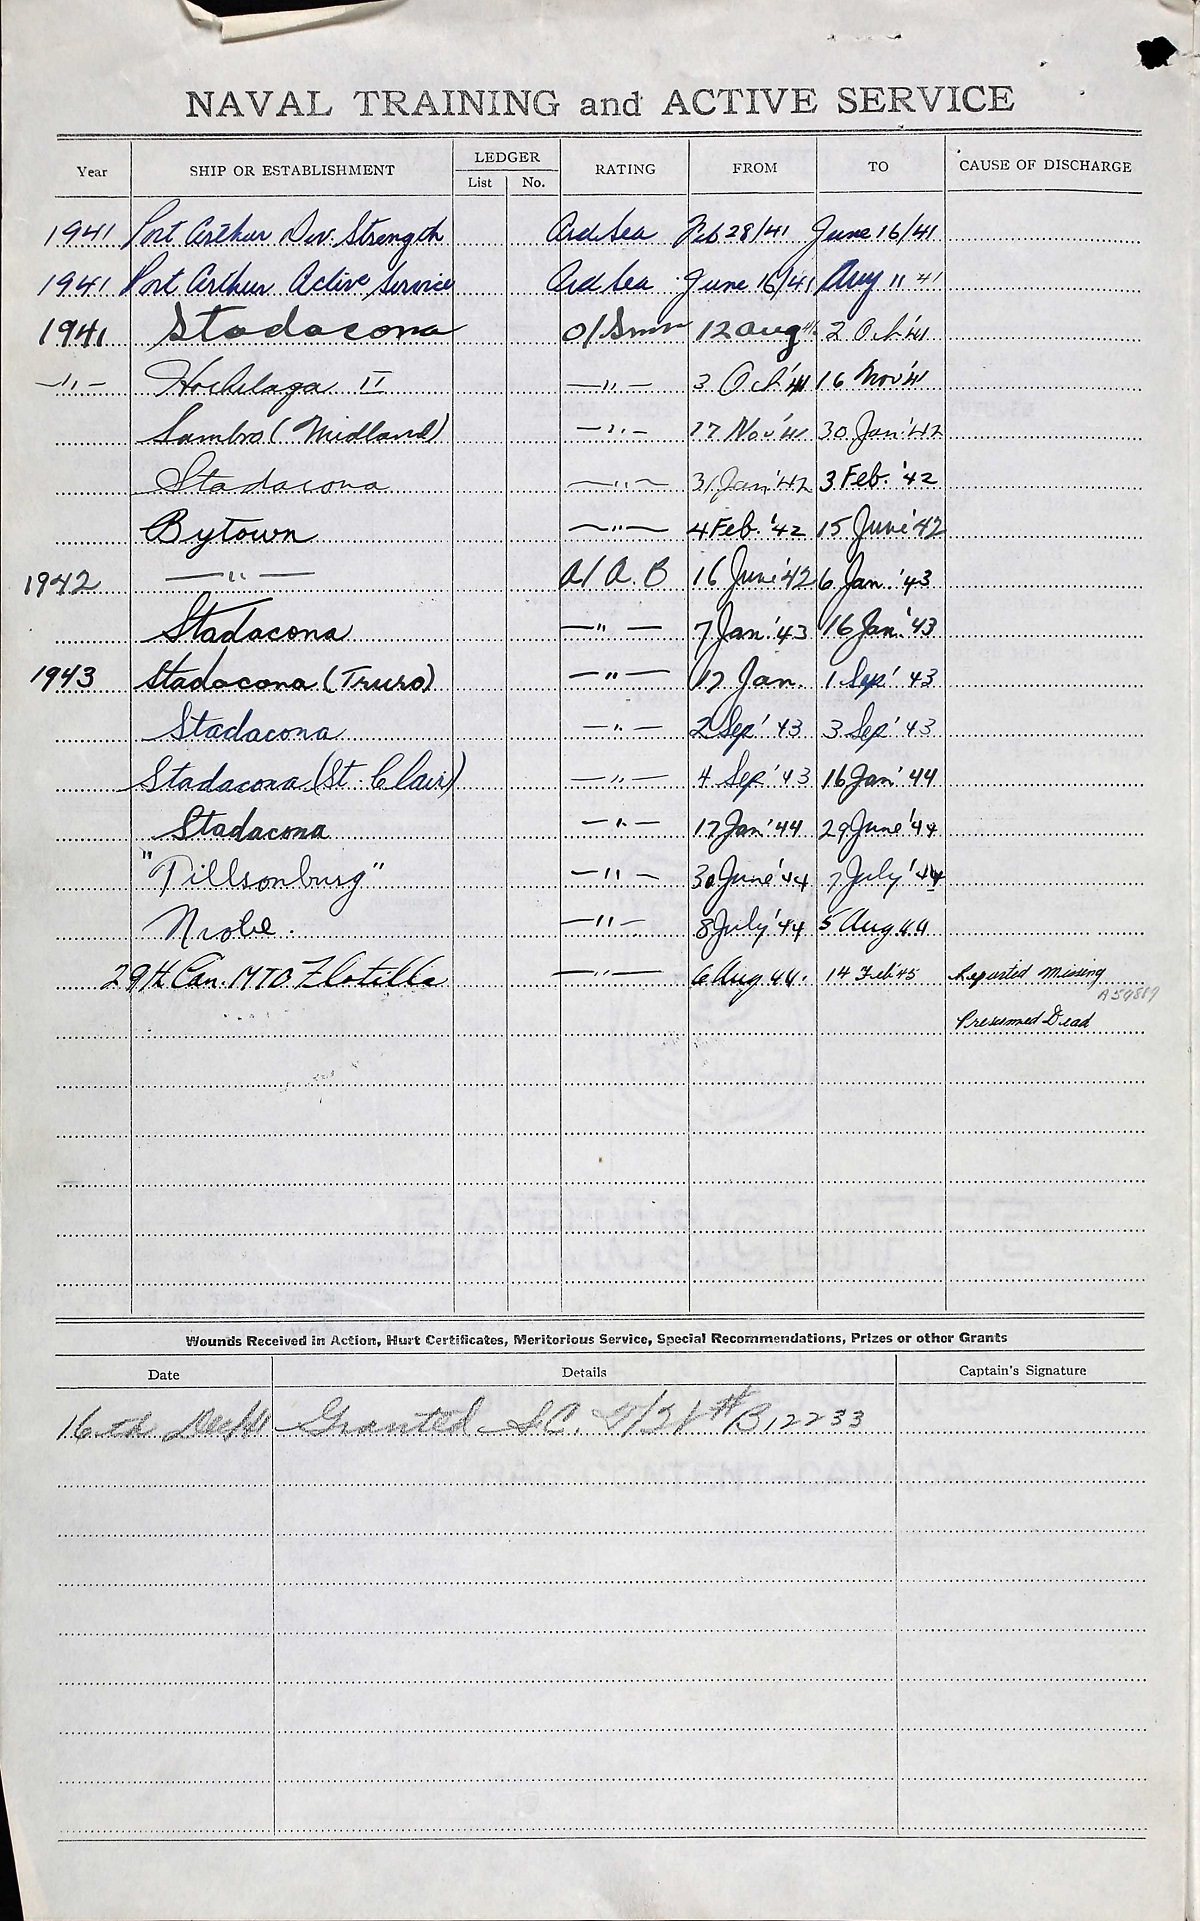 NAVAL TRAINING and ACTIVE SERVICE
Year SHIP OR ESTABLISHMENT LEDGER List No. RATING FROM TO CAUSE OF DISCHARGE
1941 Port Arthur Div. Strength Ord Sea Feb 28/41 June 16/41
1941 Port Arthur Active Service Ord Sea June 16/41 Aug 11 41
1941 Stadacona O/Smn 12 Aug 41 2 Oct '41
—"— Hochelaga II —"— 3 Oct '41 16 Nov '41
Sambro (Midland) —"— 17 Nov '41 30 Jan '42
Stadacona —"— 31 Jan '42 3 Feb. '42
Bytown —"— 4 Feb. '42 15 June '42
1942 —"— A/ A. B 16 June '42 6 Jan. '43
Stadacona —"— 7 Jan. '43 16 Jan. '43
1943 Stadacona (Truro) —"— 17 Jan. 1 Sep' 43
Stadacona —"— 2 Sep' 43 3 Sep' 43
Stadacona (St. Clair) —"— 4 Sep' 43 16 Jan' 44
Stadacona —"— 17 Jan' 44 29 June '44
"Tillsonburg" —"— 30 June '44 7 July '44
Niobe. —"— 8 July '44 5 Aug 44
29th Can. MTB Flotilla —"— 6 Aug 44. 14 Feb '45 Reported Missing
A59819
Presumed Dead
Wounds Received in Action, Hurt Certificates, Meritorious Service, Special Recommendations, Prizes or other Grants
Date Details Captain's Signature
16 th Dec/41 Granted S.C. # B12233